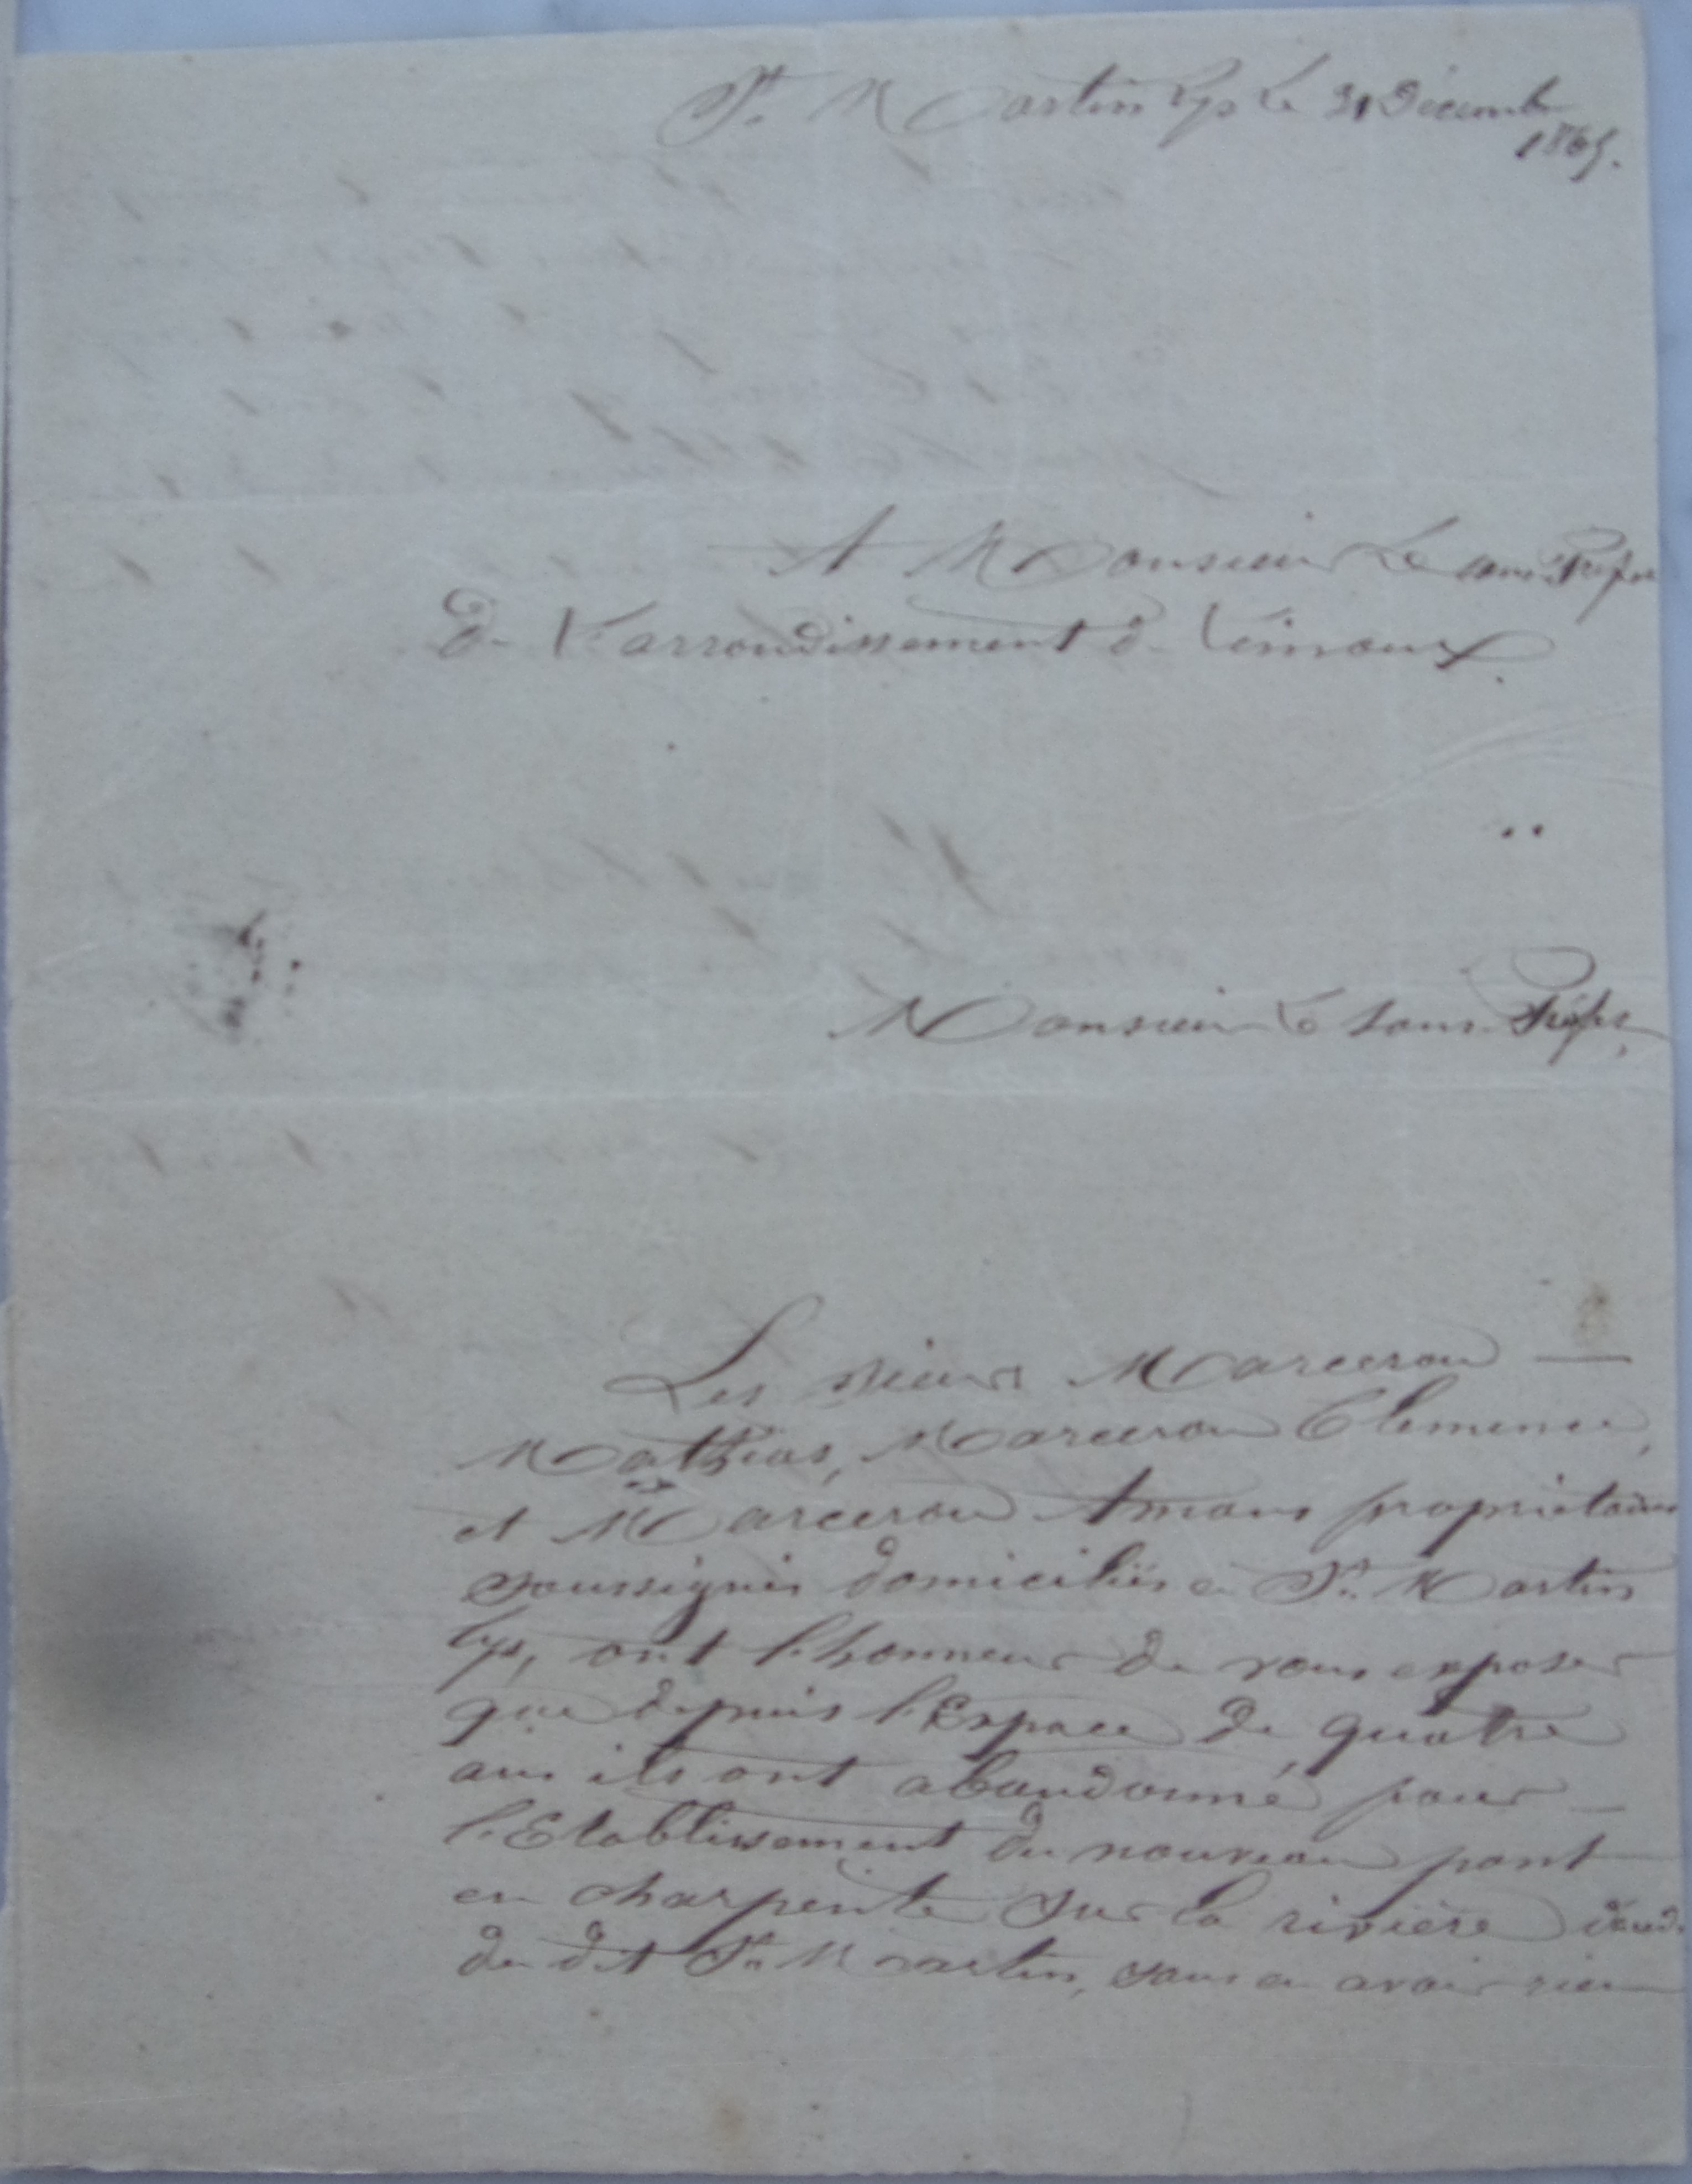 St. Martin Lys Le 31 Décembre
1865.
A Monsieur Le sous Préfet
de L'arrondissement de Limoux.
Monsieur Le sous Préfet,
Les sieurs Marcerou
Mathias, Marcerou Clemence,
et Marcerou Amans propriétaires
soussignés domiciliés a St. Martin
Lys, ont l'honneur de vous exposer
que depuis l'Espace de quatre
ans ils ont abandonné pour
l'Etablissement du nouveau pont
en charpente sur la rivière d'aude
du dit St. Martin, sans en avoir rien